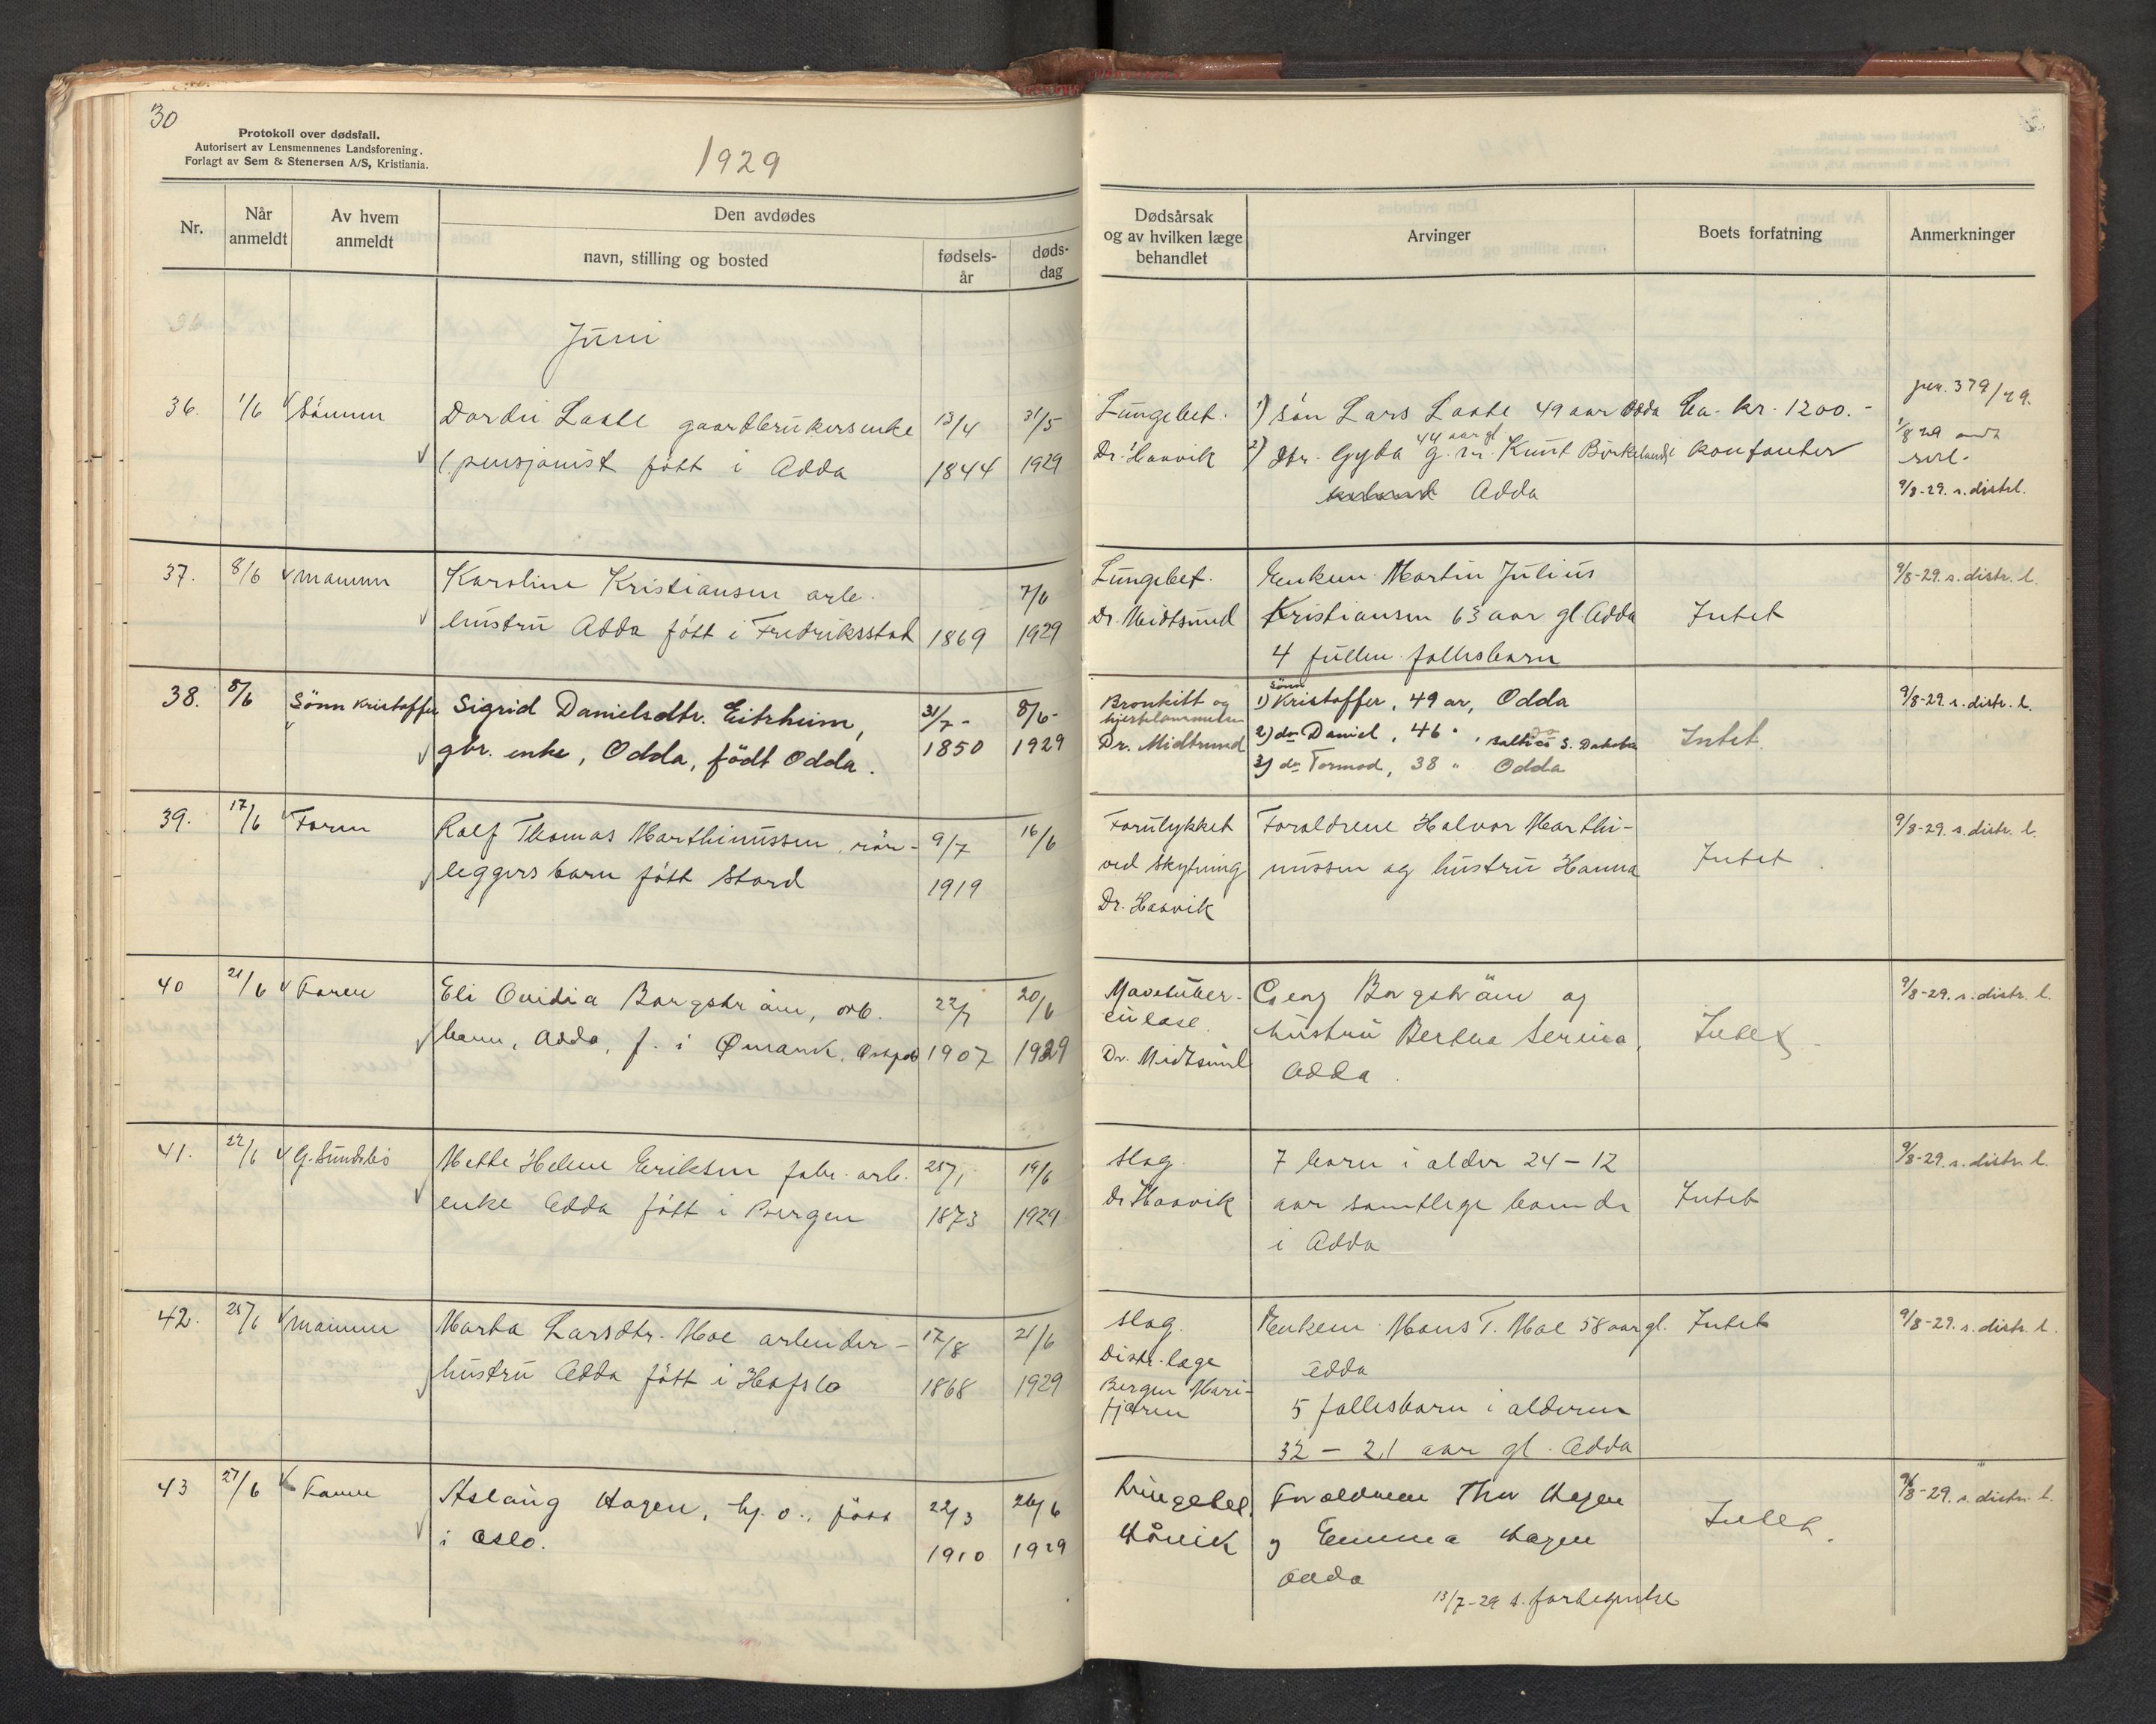 30
Protokoll over dødsfall.
Autorisert av Lensmennenes Landsforening.
Forlagt av Sem & Stenersen A/S, Kristiania.
1929
Nr.
Når anmeldt
Av hvem anmeldt
Den avdødes
navn, stilling og bosted
fødsels-år
døds-dag
Dødsårsak og av hvilken læge behandlet
Arvinger
Boets forfatning
Anmerkninger
Juni
36. 1/6 Sönnen Dordei Laate gaardbrukersenke 13/4 31/5 Lungebet. 1) sön Lars Laate 49 aar Odda Ca. kr. 1200.-
pensjonist född i Odda 1844 1929 Dr. Haavik 2) dtr. Gyda 44 aar gl. g. m. Knut Birkeland i kontanter
Odda
jnr. 379/29.
9/8-29. s. distr. l.
37. 8/6 Mannen Karoline Kristiansen arb. 7/6 Lungebet. Enkem. Martin Julius 9/8-29. s. distr. l.
hustru Odda född i Fredriksstad 1869 1929 Dr. Midtsund Kristiansen 63 aar gl Odda Intet
4 fullm. fellesbarn
38. 8/6 Sönn Kristoffer Sigrid Danielsdtr. Eitrheim, 31/7- 8/6- Bronkitt og 1) sönn Kristoffer, 49 ar, Odda 9/8-29. s. distr. l.
hjertelammelse
gbr. enke, Odda, födt Odda. 1850 1929 Dr. Midtsund 2) do Daniel, 46 " , S. Dakota Intet.
3) do Tormod, 38 " Odda
39. 17/6 Faren Rolf Thomas Marthinussen, rör- 9/7 16/6 Forulykket Foreldrene Halvor Marthi- 9/8-29. s. distr. l.
leggers barn född Stord 1919 ved skytning nussen og hustru Hanna Intet
Dr. Haavik
40 21/6 Faren Eli Ovidia Borgström, arb. 22/7 20/6 Mavetuber- Georg Borgström og 9/8-29. s. distr. l.
barn, Odda, f. i Ømark, 1907 1929 culose. hustru Bertha Serina, Intet
Dr. Midtsund Odda
41. 22/6 G. Sundsbö Mette Helene Eriksen fabr. arb. 25/1 19/6 Slag. 7 barn i alder 24 – 12 9/8-29. s. distr. l.
enke Odda född i Bergen 1873 1929 Dr Haavik aar samtlige boende Intet
i Odda
42. 25/6 Mannen Marta Larsdtr. Moe arbeider- 17/8 21/6 Slag. Enkem. Mons T. Moe 58 aar gl. Intet 9/8-29. s. distr. l.
hustru Odda född i Hafslo 1868 1929 Distr. læge Odda
Bergen Mari-
fjæren 5 fellesbarn i alderen
32 – 21 aar gl. Odda
43 27/6 Faren Aslaug Hagen, hj. o., född 22/3 26/6 Lungebet. Foreldrene Thor Hagen 9/8-29. s. distr. l.
i Oslo. 1910 1929 Håvik og Emma Hagen Intet.
Odda
13/7-29 s.